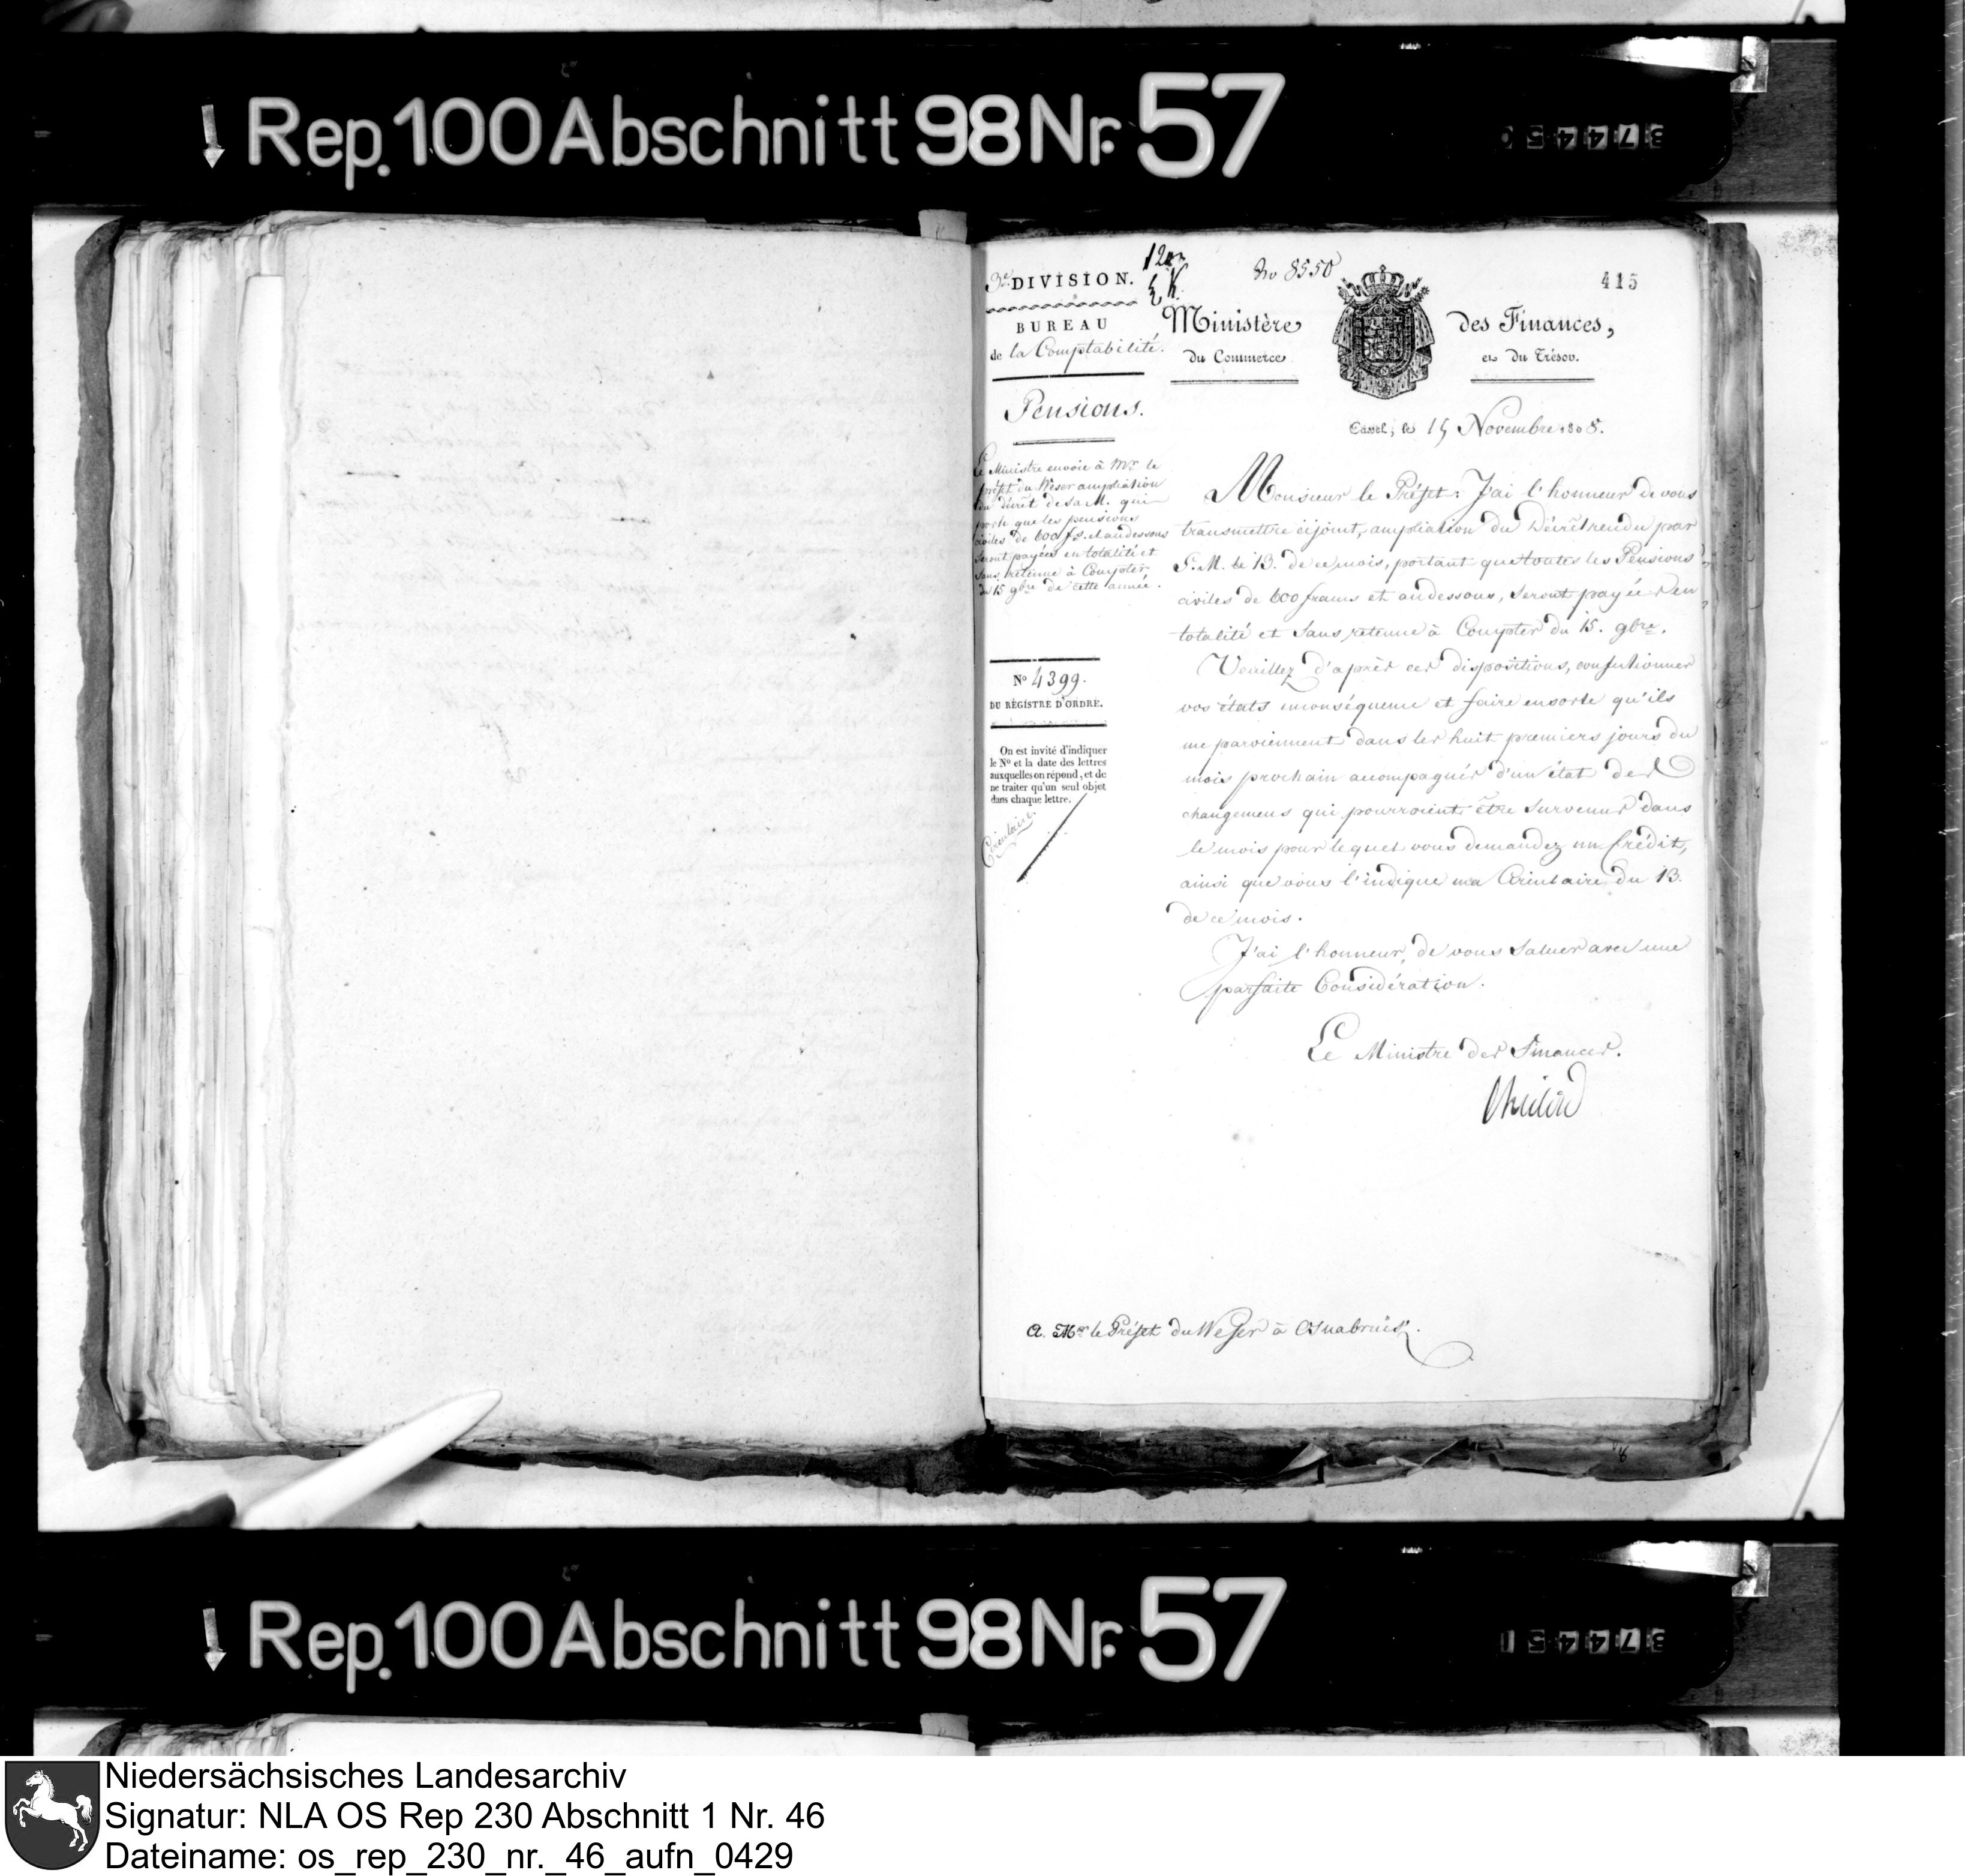 Rep. 100 Abschnitt 98 Nr. 57
374450
3e. DIVISION.
No 8550
415
BUREAU
de la Comptabilité.
Ministère des Finances,
du Commerce et du Trésor.
Pensions.
Cassel, le 15 Novembre 1808.
Le Ministre envoie à Mr. le
préfet du Weser ampliation
du décrêt de Sa M. qui
porte que les pensions
civiles de 600 fs. et audessous
seront payées en totalité et
sans retenue à Compter
du 15 9bre de cette année.
No 4399.
DU RÉGISTRE D'ORDRE.
On est invité d'indiquer
le No et la date des lettres
auxquelles on répond, et de
ne traiter qu'un seul objet
dans chaque lettre.
Circulaire.
Monsieur le Préfet. J'ai l'honneur de vous
transmettre cijoint, ampliation du Décrêt rendu par
S. M. le 13. de ce mois, portant que toutes les Pensions
civiles de 600 francs et audessous, seront payées en
totalité et sans retenue à Compter du 15. 9bre.
Veuillez d'après ces dispositions, confectionner
vos états en conséquence et faire ensorte qu'ils
me parviennent dans les huit premiers jours du
mois prochain accompagnés d'un état des
changemens qui pourroient être survenus dans
le mois pour lequel vous demandez un Crédit,
ainsi que vous l'indique ma Circulaire du 13.
de ce mois.
J'ai l'honneur de vous saluer avec une
parfaite Considération.
Le Ministre des Finances.
A. Mr. le Préfet du Weser à Osnabrück.
Rep. 100 Abschnitt 98 Nr. 57
374451
Niedersächsisches Landesarchiv
Signatur: NLA OS Rep 230 Abschnitt 1 Nr. 46
Dateiname: os_rep_230_nr._46_aufn_0429